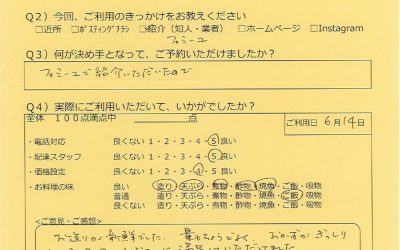 Q2）今回、ご利用のきっかけをお教えください
□近所 □ポスティングチラシ □紹介（知人・業者） □ホームページ □Instagram
Q3）何が決め手となって、ご予約いただけましたか？
で紹介いただいたので
Q4）実際にご利用いただいて、いかがでしたか？
全体 100点満点中 点
ご利用日 6月14日
・電話対応 良くない 1・2・3・4・5 良い
・配達スタッフ 良くない 1・2・3・4・5 良い
・価格設定 良くない 1・2・3・4・5 良い
・お料理の味 良い 造り・天ぷら・煮物・酢物・焼魚・ご飯・吸物
普通 造り・天ぷら・煮物・酢物・焼魚・ご飯・吸物
良くない 造り・天ぷら・煮物・酢物・焼魚・ご飯・吸物
＜ご意見・ご感想＞
お造りが新鮮でした。量もちょうどよく、おかずがぎっしり